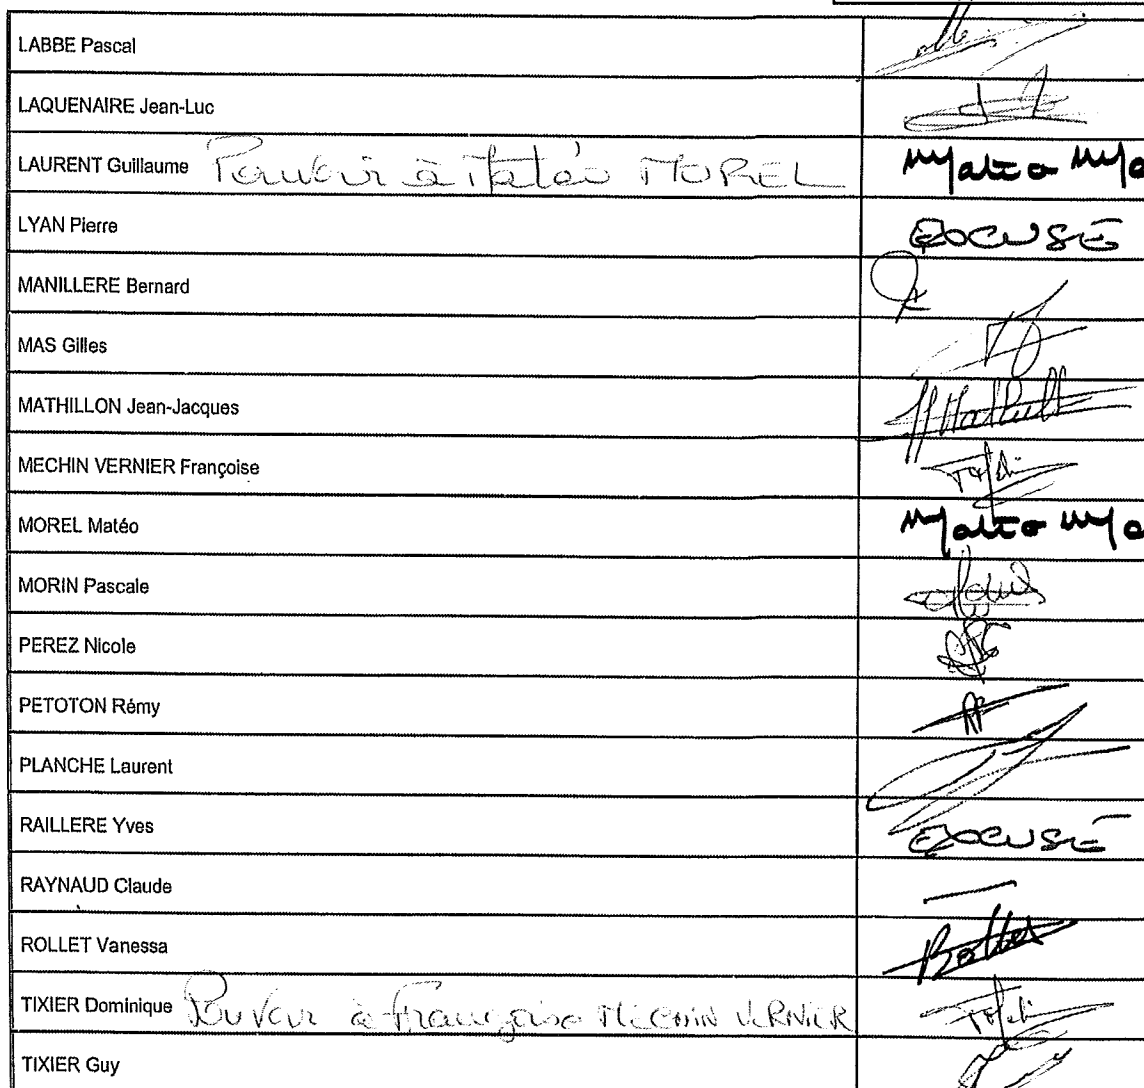 LABBE Pascal
LAQUENAIRE Jean-Luc
LAURENT Guillaume Pouvoir à Matéo MOREL
LYAN Pierre EXCUSÉ
MANILLERE Bernard
MAS Gilles
MATHILLON Jean-Jacques
MECHIN VERNIER Françoise
MOREL Matéo
MORIN Pascale
PEREZ Nicole
PETOTON Rémy
PLANCHE Laurent
RAILLERE Yves EXCUSÉ
RAYNAUD Claude
ROLLET Vanessa Rollet
TIXIER Dominique Pouvoir à Françoise MECHIN VERNIER
TIXIER Guy